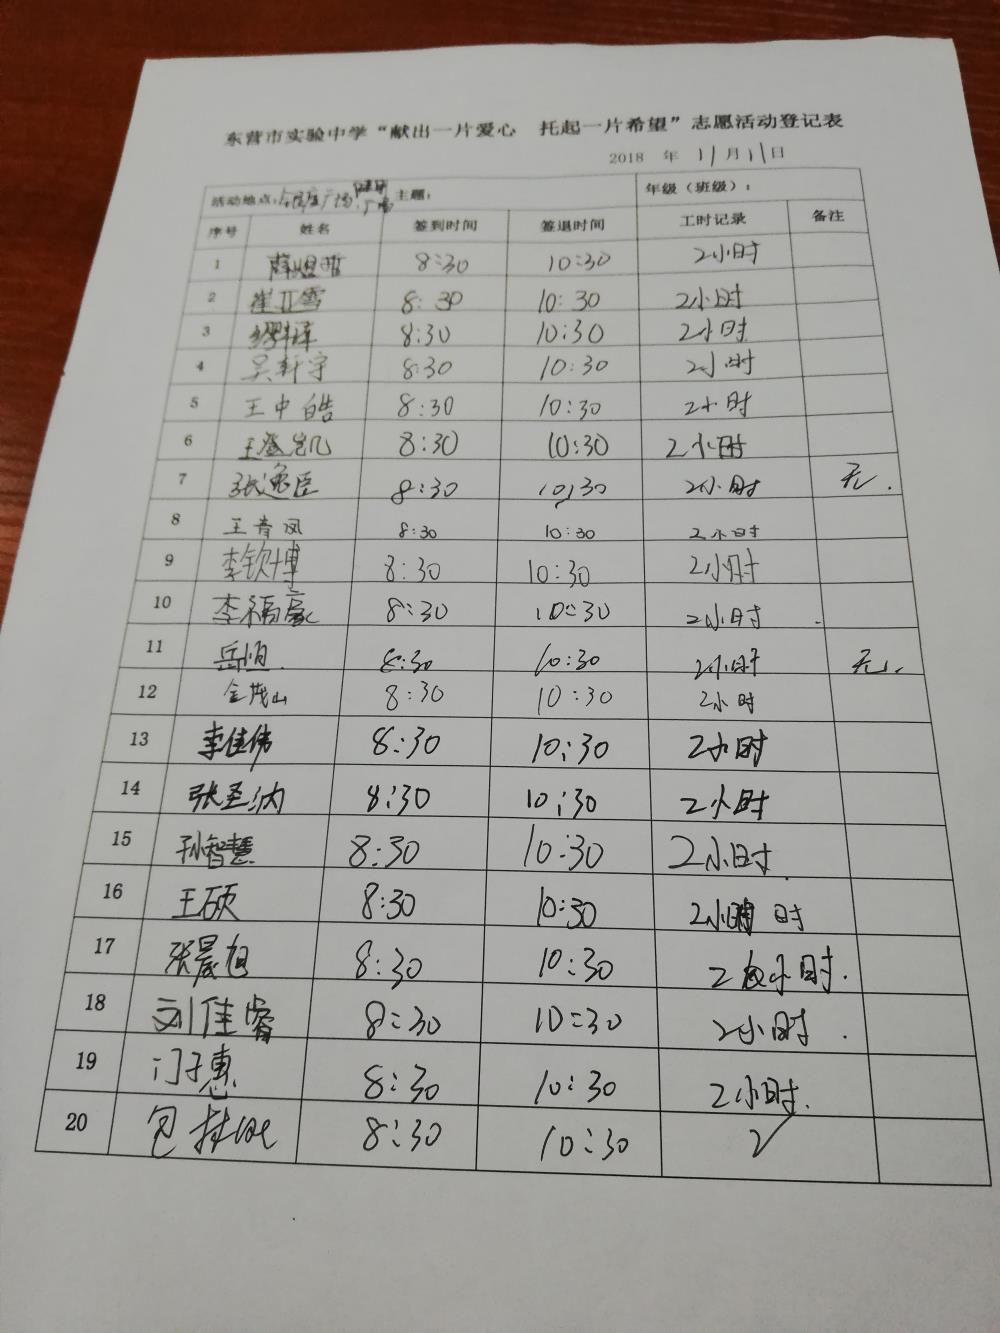 东营市实验中学“献出一片爱心 托起一片希望”志愿活动登记表
2018 年 11月11日
活动地点: 广场 主题: 年级(班级):
序号 姓名 签到时间 签退时间 工时记录 备注
1 8:30 10:30 2小时
2 崔亚雪 8:30 10:30 2小时
3 8:30 10:30 2小时
4 吴轩宇 8:30 10:30 2小时
5 王中皓 8:30 10:30 2小时
6 王盛凯 8:30 10:30 2小时
7 张逸臣 8:30 10:30 2小时 无.
8 王青凤 8:30 10:30 2小时
9 李钦博 8:30 10:30 2小时
10 李福豪 8:30 10:30 2小时
11 岳恒. 8:30 10:30 2小时 无.
12 金茂山 8:30 10:30 2小时
13 李佳伟 8:30 10:30 2小时
14 张圣 8:30 10:30 2小时
15 孙智慧 8:30 10:30 2小时.
16 王硕 8:30 10:30 2小时
17 张晨旭 8:30 10:30 2小时.
18 刘佳睿 8:30 10:30 2小时.
19 门子惠 8:30 10:30 2小时.
20 包 8:30 10:30 2